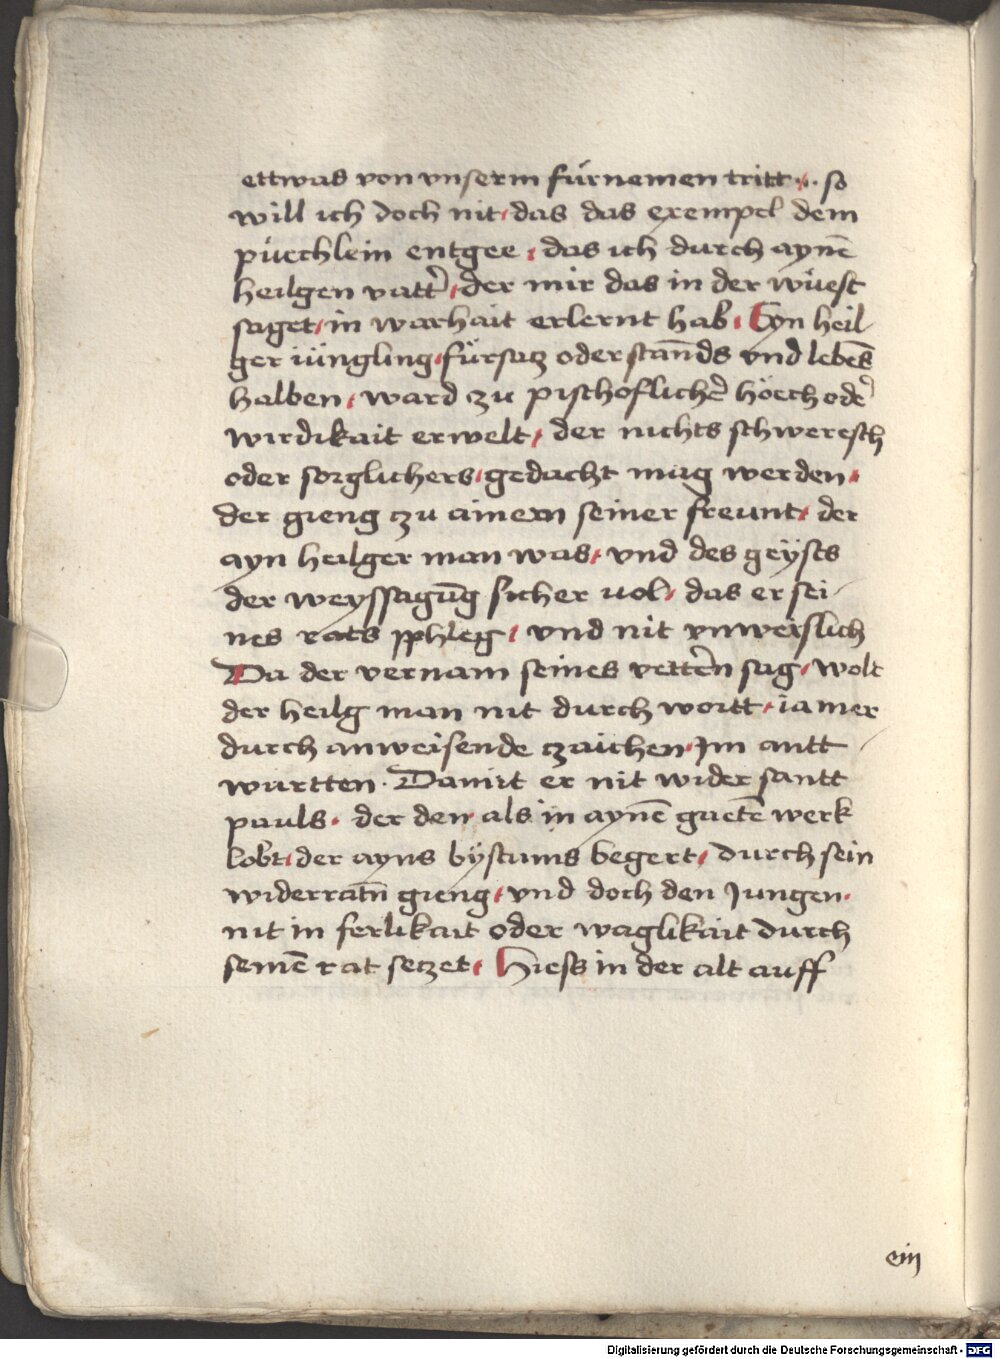 ettwas von vnserm fürnemen tritt. so
will ich doch nit / das das exempel dem
püechlein entgee / das ich durch aynē
heilgen vatt̄ / der mir das in der wüest
saget / in warhait erlernt hab / Eyn heil
ger iüngling / fürsatz oder stan̄ds vnd lebēs
halben / ward zu pischoflich̄e höech odē
wirdikait erwelt / der nichts schweresch
oder sorglichers / gedacht mag werden /
der gieng zu ainem seiner freunt / der
ayn heilger man was / vnd des geÿsts
der weyssagūg sicher uol / das er sei-
nes rats pphleg / vnd nit vnweislich
Da der vernam seines vettern̄ sag / wolt
der heilg man nit durch wortt / ia mer
durch anweisende czaichen / Im antt /
wurtten · Damit er nit wider santt
pauls / der den als in aynē guetē werk
lobt / der ayns bÿstums begert / durch sein
widerratn̄ gieng / vnd doch den Jungen /
nit in ferlikait oder waglikait durch
seinē rat seczet / Hiess in der alt auff
ein
Digitalisierung gefördert durch die Deutsche Forschungsgemeinschaft - DFG